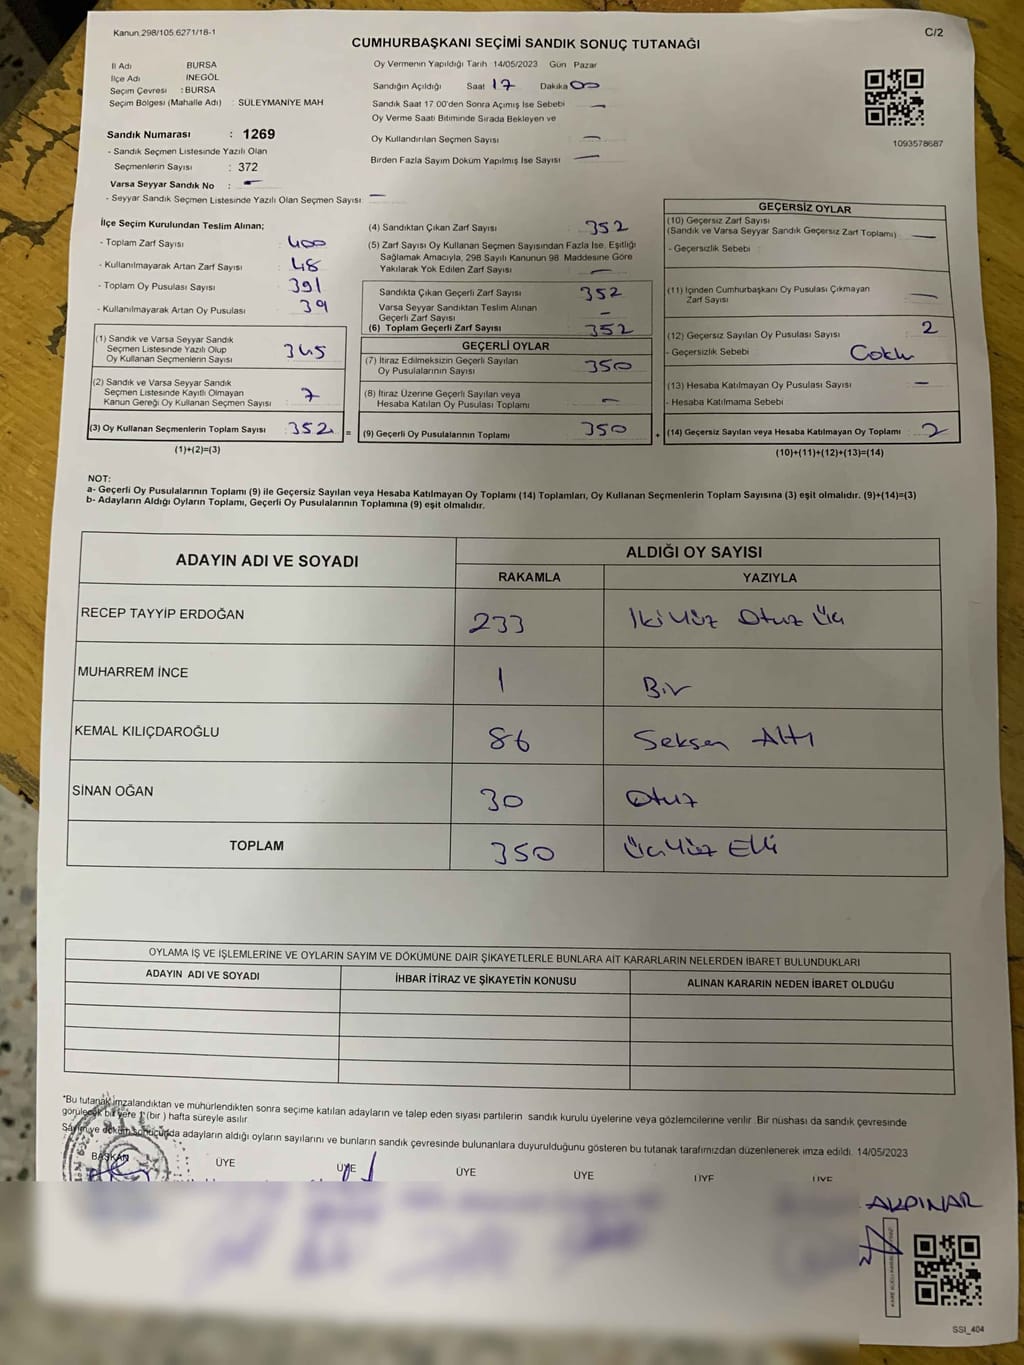 Kanun.298/105.6271/18-1
C/2
CUMHURBAŞKANI SEÇİMİ SANDIK SONUÇ TUTANAĞI
İl Adı BURSA
İlçe Adı INEGÖL
Seçim Çevresi : BURSA
Seçim Bölgesi (Mahalle Adı) : SÜLEYMANİYE MAH
Oy Vermenin Yapıldığı Tarih 14/05/2023 Gün Pazar
Sandığın Açıldığı Saat 17 Dakika 00
Sandık Saat 17 00'den Sonra Açımış Ise Sebebi —
Oy Verme Saati Bitiminde Sırada Bekleyen ve
Oy Kullandırılan Seçmen Sayısı —
Birden Fazla Sayım Döküm Yapılmış İse Sayısı —
1093578687
Sandık Numarası : 1269
- Sandık Seçmen Listesinde Yazılı Olan
Seçmenlerin Sayısı : 372
Varsa Seyyar Sandık No : —
- Seyyar Sandık Seçmen Listesinde Yazılı Olan Seçmen Sayısı —
İlçe Seçim Kurulundan Teslim Alınan;
- Toplam Zarf Sayısı : 400
- Kullanılmayarak Artan Zarf Sayısı : 48
- Toplam Oy Pusulası Sayısı : 391
- Kullanılmayarak Artan Oy Pusulası : 39
(1) Sandık ve Varsa Seyyar Sandık
Seçmen Listesinde Yazılı Olup
Oy Kullanan Seçmenlerin Sayısı : 345
(2) Sandık ve Varsa Seyyar Sandık
Seçmen Listesinde Kayıtlı Olmayan
Kanun Gereği Oy Kullanan Seçmen Sayısı : 7
(3) Oy Kullanan Seçmenlerin Toplam Sayısı : 352 =
(1)+(2)=(3)
(4) Sandıktan Çıkan Zarf Sayısı : 352
(5) Zarf Sayısı Oy Kullanan Seçmen Sayısından Fazla Ise, Eşitliği
Sağlamak Amacıyla, 298 Sayılı Kanunun 98. Maddesine Göre
Yakılarak Yok Edilen Zarf Sayısı : —
Sandıkta Çıkan Geçerli Zarf Sayısı : 352
Varsa Seyyar Sandıktan Teslim Alınan
Geçerli Zarf Sayısı : —
(6) Toplam Geçerli Zarf Sayısı : 352
GEÇERLİ OYLAR
(7) İtiraz Edilmeksizin Geçerli Sayılan
Oy Pusulalarının Sayısı : 350
(8) İtiraz Üzerine Geçerli Sayılan veya
Hesaba Katılan Oy Pusulaları Toplamı : —
(9) Geçerli Oy Pusulalarının Toplamı : 350 +
GEÇERSİZ OYLAR
(10) Geçersiz Zarf Sayısı
(Sandık ve Varsa Seyyar Sandık Geçersiz Zarf Toplamı) : —
- Geçersizlik Sebebi :
(11) İçinden Cumhurbaşkanı Oy Pusulası Çıkmayan
Zarf Sayısı : —
(12) Geçersiz Sayılan Oy Pusulası Sayısı : 2
- Geçersizlik Sebebi : Coklu
(13) Hesaba Katılmayan Oy Pusulası Sayısı : —
- Hesaba Katılmama Sebebi :
(14) Geçersiz Sayılan veya Hesaba Katılmayan Oy Toplamı : 2
(10)+(11)+(12)+(13)=(14)
NOT:
a- Geçerli Oy Pusulalarının Toplamı (9) ile Geçersiz Sayılan veya Hesaba Katılmayan Oy Toplamı (14) Toplamları, Oy Kullanan Seçmenlerin Toplam Sayısına (3) eşit olmalıdır. (9)+(14)=(3)
b- Adayların Aldığı Oyların Toplamı, Geçerli Oy Pusulalarının Toplamına (9) eşit olmalıdır.
ADAYIN ADI VE SOYADI ALDIĞI OY SAYISI
RAKAMLA YAZIYLA
RECEP TAYYİP ERDOĞAN 233 İki Yüz Otuz Üç
MUHARREM İNCE 1 Bir
KEMAL KILIÇDAROĞLU 86 Seksen Altı
SİNAN OĞAN 30 Otuz
TOPLAM 350 Üç Yüz Elli
OYLAMA İŞ VE İŞLEMLERİNE VE OYLARIN SAYIM VE DÖKÜMÜNE DAİR ŞİKAYETLERLE BUNLARA AİT KARARLARIN NELERDEN İBARET BULUNDUKLARI
ADAYIN ADI VE SOYADI İHBAR İTİRAZ VE ŞİKAYETİN KONUSU ALINAN KARARIN NEDEN İBARET OLDUĞU
*Bu tutanak imzalandıktan ve mühürlendikten sonra seçime katılan adayların ve talep eden siyasi partilerin sandık kurulu üyelerine veya gözlemcilerine verilir. Bir nüshası da sandık çevresinde
görülecek bir yere 1 (bir) hafta süreyle asılır
Sayım ve döküm sonucunda adayların aldığı oyların sayılarını ve bunların sandık çevresinde bulunanlara duyurulduğunu gösteren bu tutanak tarafımızdan düzenlenerek imza edildi. 14/05/2023
BAŞKAN ÜYE ÜYE ÜYE ÜYE ÜYE ÜYE
AKPINAR
SSI_404